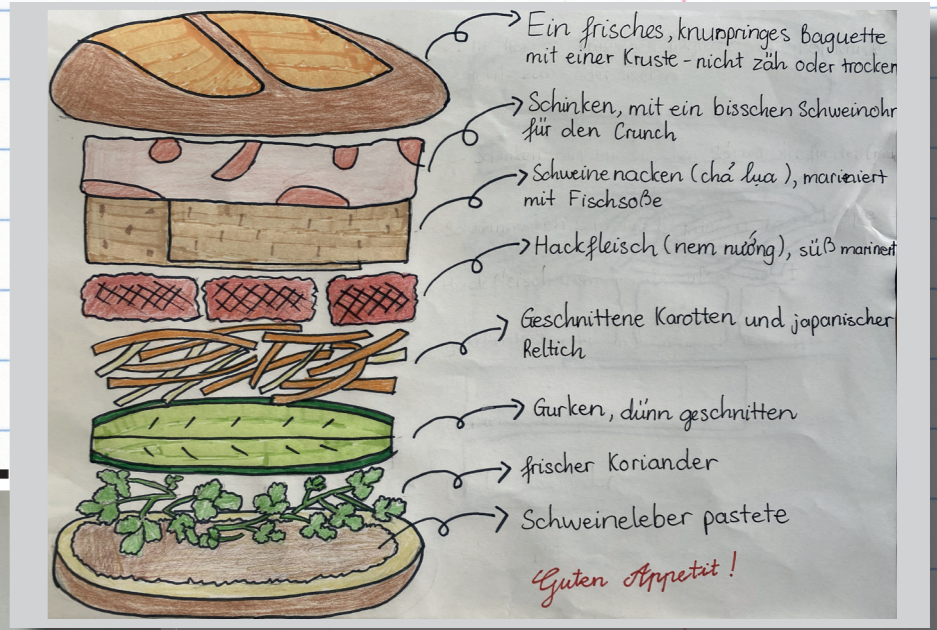 Ein frisches, knurpringes Baguette
mit einer Kruste - nicht zäh oder trocken
Schinken, mit ein bisschen Schweinohr
für den Crunch
Schweinenacken (chả lụa), mariniert
mit Fischsoße
Hackfleisch (nem nướng), süß marinert
Geschnittene Karotten und japanischer
Reltich
Gurken, dünn geschnitten
frischer Koriander
Schweineleber pastete
Guten Appetit!